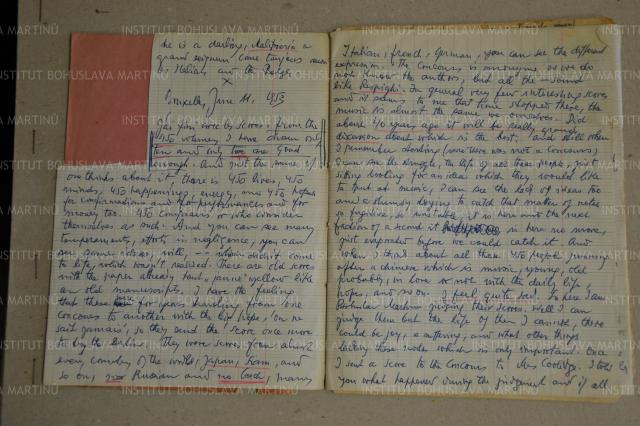 he is a darling, Malipiero a
grand seigneur,
Italian, and the Belge.
x
Bruxelles, June 11. 953
you here by scores. From the
450 volumes I have chosen only
ten and not too are good
enough. And just the same if
one thinks about it, there is 450 lives, 450
minds, 450 happenings, energy, and 450 hopes
for confirmations and for performances and for
money too. 450 composers, or who consider
themselves as such. And you can see many
temperaments, efforts in negligence, you can
see games, nerves, will, which didn't come
to life, which wasn't realised. There are old scores
with the paper already turned yellow like
an old manuscripts, I have the feeling
that these for years traveling from one
concours to another with the last hope, 'on ne
sait jamais', so they send the score once more
to try the
every country of the world, Japan, Siam, and
so on, Russian and no Czech, many
Italian, french, German, you can see the different
expression. The concours is anonyme so we do
not know the authors, but all the
like Respighi. In general very few interesting scores
and it seems to me that time stopped there, the
music is almost the same we ourselves did
about 40 years ago. It will be really going
discussion about which is the best, and still when
I remember darling (some there was not a concours)
I can see the struggle, the life of all these people, just
sitting looking for an idea which they would like
to put as music, I can see the lack of ideas too
and clumsy trying to catch that matter of notes
so fugitive, so unstable, it is here and the next
fraction of a second it is here no more,
just evaporated before we could catch it. And
when I think about all these 450 people running
after a chimere which is music, young, old
probably, in love or not with the daily life,
hopes, and so on. I feel quite sad. So here I am
Bohuslav Martinu judging their scores. Well I can
judge them but the life of them I cannot, there
could be joy, a suffering, and what other things
which is only important. Once
I sent a score to the concours to Mrs Coolidge. I told
you what happened during the judgment and if all
INSTITUT BOHUSLAVA MARTINŮ